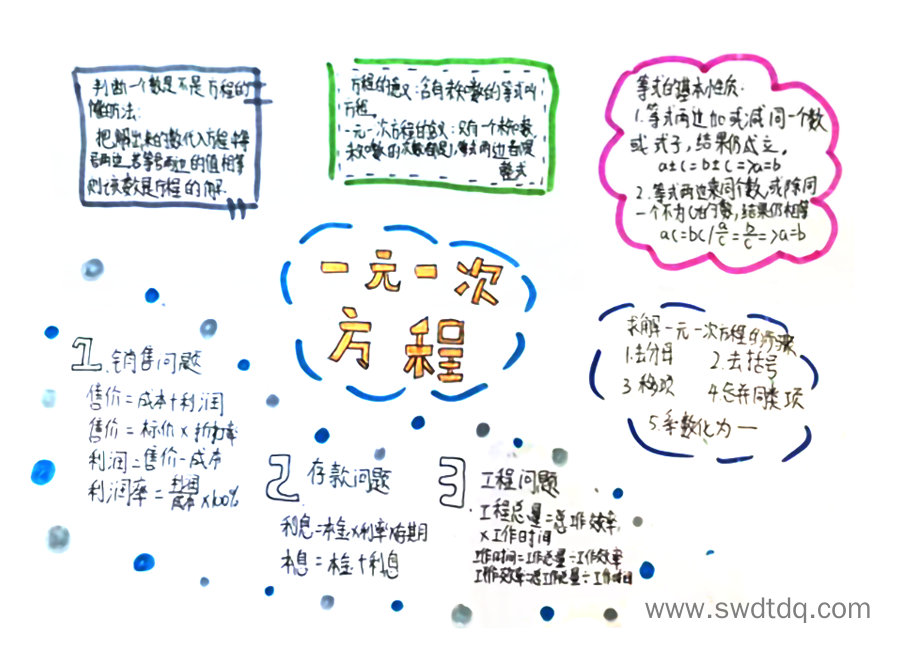 判断一个数是不是方程的
解的方法:
把解出来的数代入方程中等
号两边,若等号两边的值相等
则该数是方程的解.
方程的意义:含有未知数的等式叫
方程.
一元一次方程的意义:只有一个未知数,
未知数的次数都是1,等式两边都是
整式
等式的基本性质:
1.等式两边加或减同一个数
或式子,结果仍成立。
a±c=b±c=>a=b
2.等式两边乘同个数,或除同
一个不为0的数,结果仍相等
ac=bc/a/c=b/c=>a=b
一元一次
方程
求解一元一次方程的方案
1.去分母 2.去括号
3移项 4合并同类项
5.系数化为一
1.销售问题
售价=成本+利润
售价=标价×折扣率
利润=售价-成本
利润率=利润/成本×100%
2 存款问题
利息=本金×利率×存期
本息=本金+利息
3 工程问题
工程总量=总工作效率
×工作时间
工作时间=工作总量÷工作效率
工作效率=总工作总量÷工作时间
www.swdtdq.com